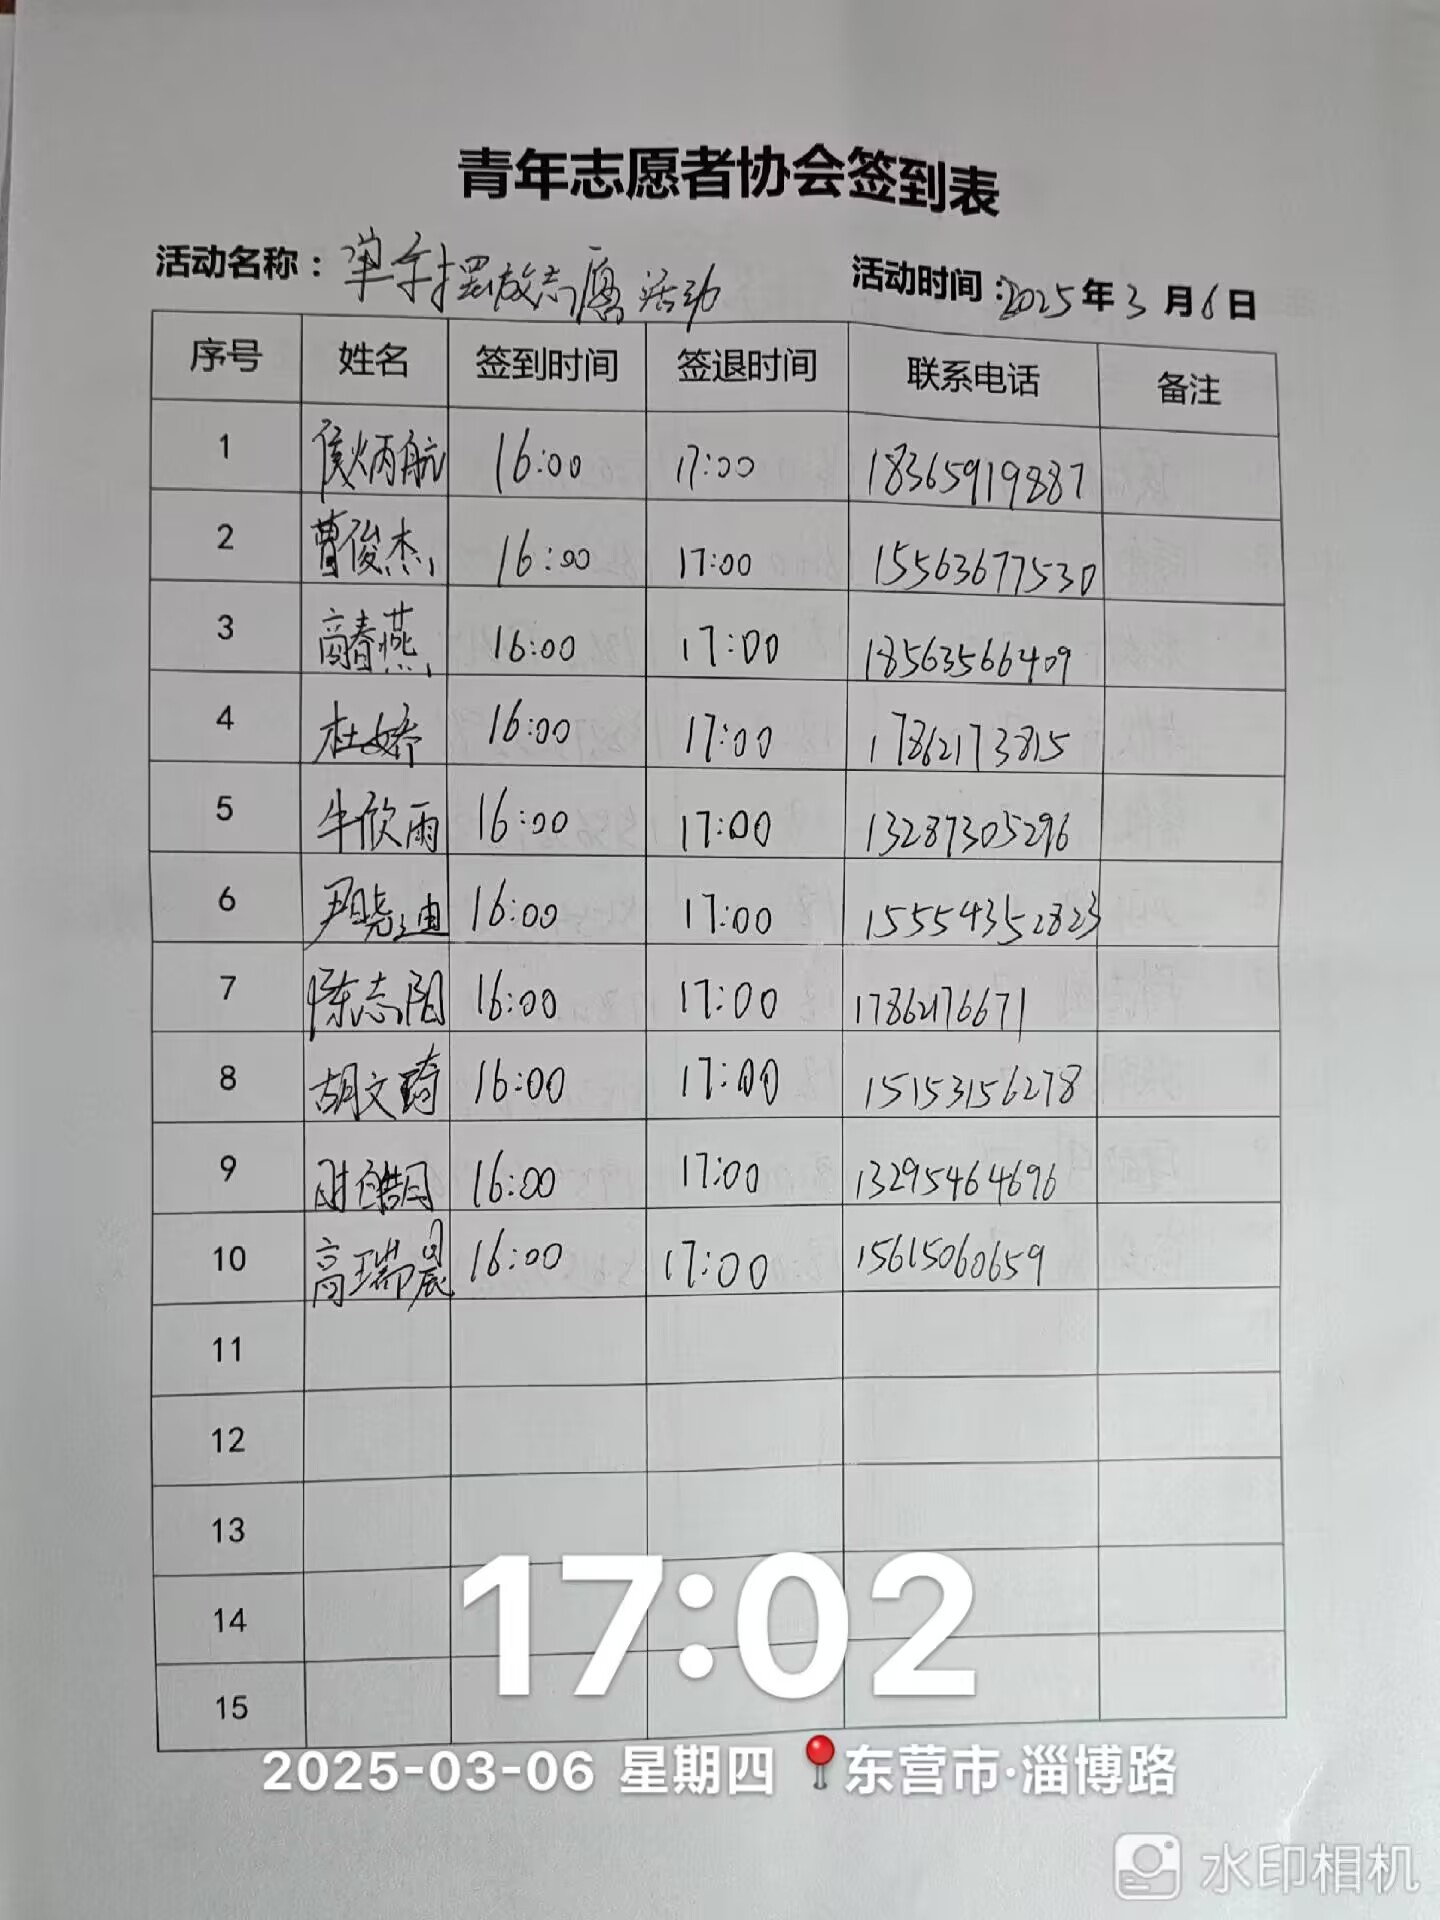 青年志愿者协会签到表
活动名称：单车摆放志愿活动 活动时间：2025年3月6日
序号 姓名 签到时间 签退时间 联系电话 备注
1 侯炳航 16:00 17:00 18365919887
2 曹俊杰 16:00 17:00 15563677530
3 高春燕 16:00 17:00 18563566409
4 杜娇 16:00 17:00 17862173815
5 牛欣雨 16:00 17:00 13287305296
6 尹晓迪 16:00 17:00 15554352823
7 陈志阳 16:00 17:00 17862176671
8 胡文琦 16:00 17:00 15153156278
9 16:00 17:00 13295464696
10 高瑞晨 16:00 17:00 15615060659
11
12
13
14
15
17:02
2025-03-06 星期四 东营市·淄博路
水印相机